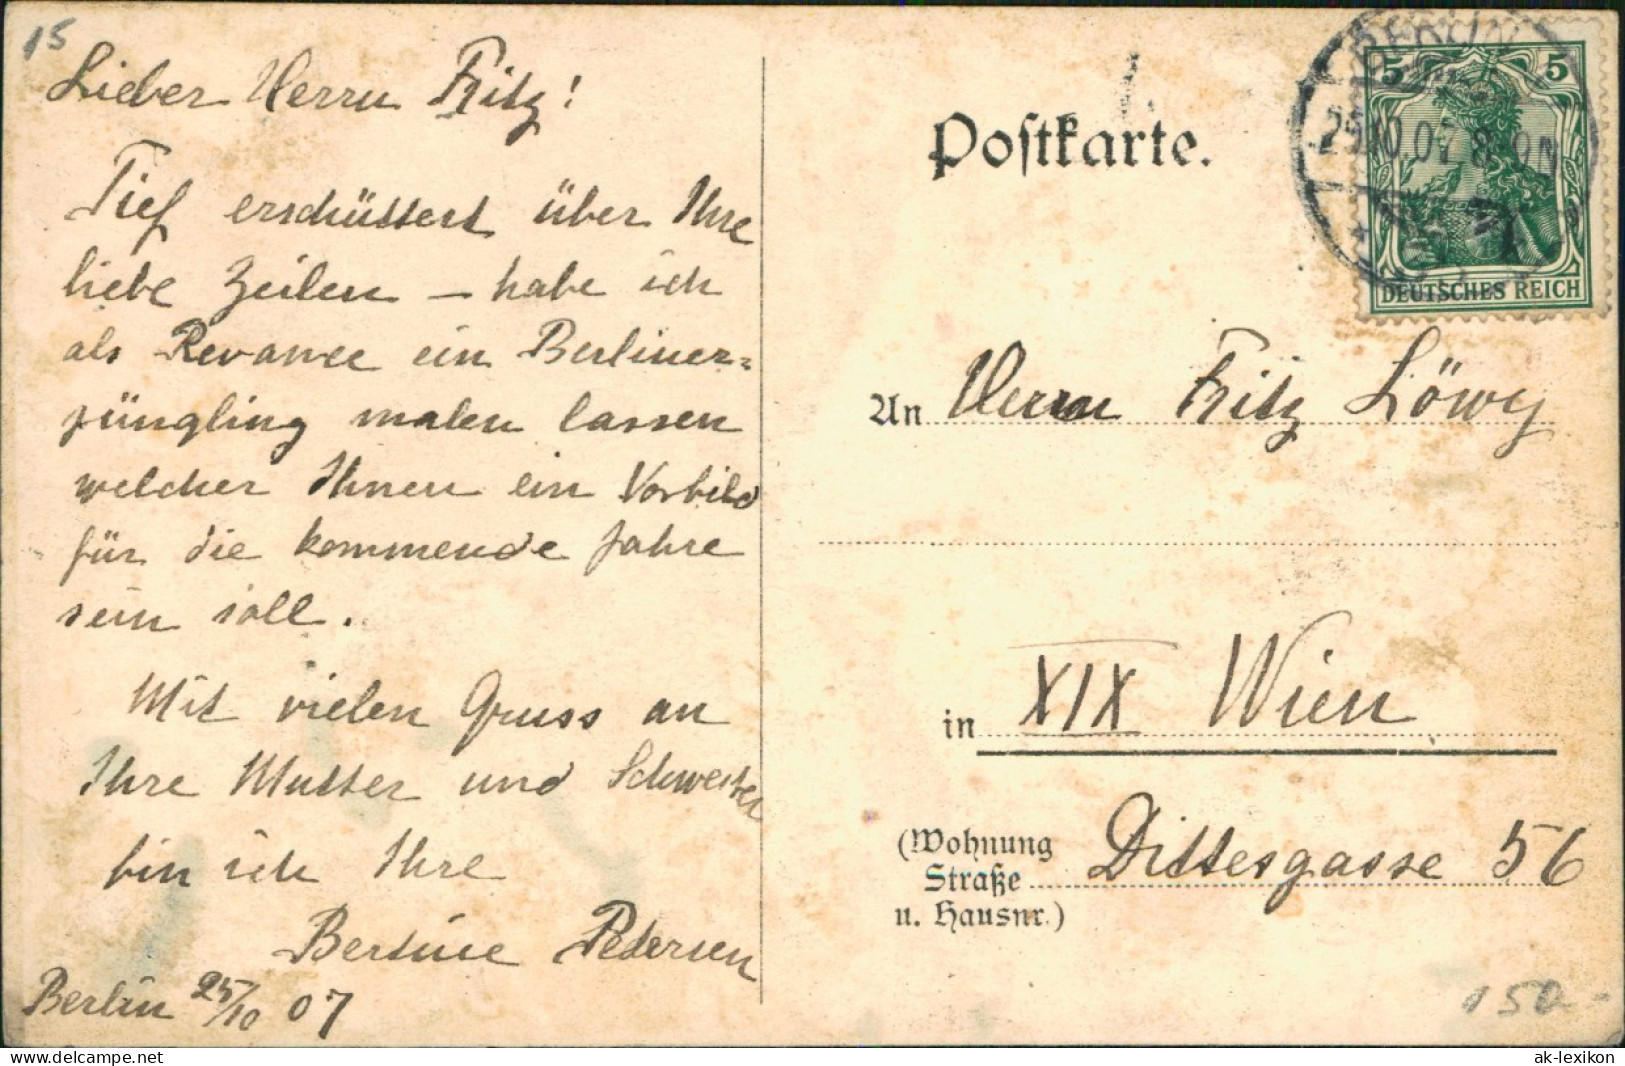 15
Lieber Herrn Fritz!
Tief erschüttert über Ihre
liebe Zeilen – habe ich
als Revance ein Berliner=
jüngling malen lassen
welcher Ihnen ein Vorbild
für die kommende Jahre
sein soll.
Mit vielen Gruss an
Ihre Mutter und Schwester
bin ich Ihre
Bertine Pedersen
Berlin 25/10 07
Postkarte.
BERLIN
25.10.07 8-9N
5 5
DEUTSCHES REICH
An Herrn Fritz Löwy
in XIX Wien
(Wohnung
Straße
u. Hausnr.)
Dittesgasse 56
150.-
www.delcampe.net
ak-lexikon